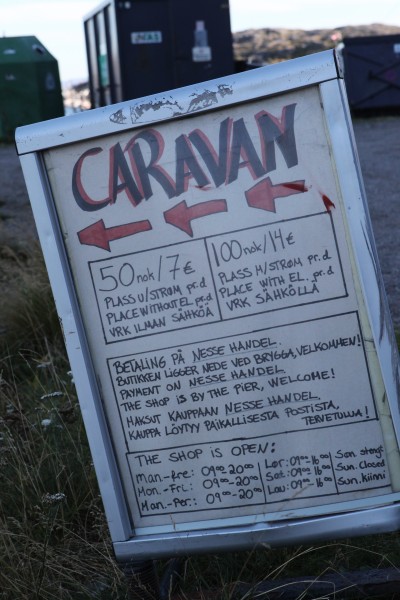 CARAVAN
50 nok/7€
PLASS U/STRØM pr.d
PLACE WITHOUT EL pr.d
VRK ILMAN SÄHKÖÄ
100 nok/14€
PLASS M/STRØM pr.d
PLACE WITH EL. pr.d
VRK SÄHKÖLLÄ
BETALING PÅ NESSE HANDEL.
BUTIKKEN LIGGER NEDE VED BRYGGA, VELKOMMEN!
PAYMENT ON NESSE HANDEL
THE SHOP IS BY THE PIER, WELCOME!
MAKSUT KAUPPAAN NESSE HANDEL,
KAUPPA LÖYTYY PAIKALLISESTA POSTISTA,
TERVETULOA!
THE SHOP IS OPEN:
Man-Fre: 09⁰⁰-20⁰⁰ Lør: 09⁰⁰-16⁰⁰ Søn. stengt
Mon.-Fri: 09⁰⁰-20⁰⁰ Sat: 09⁰⁰-16⁰⁰ Sun. Closed
Man.-Per: 09⁰⁰-20⁰⁰ Lau: 09⁰⁰-16⁰⁰ Sun. Kiinni